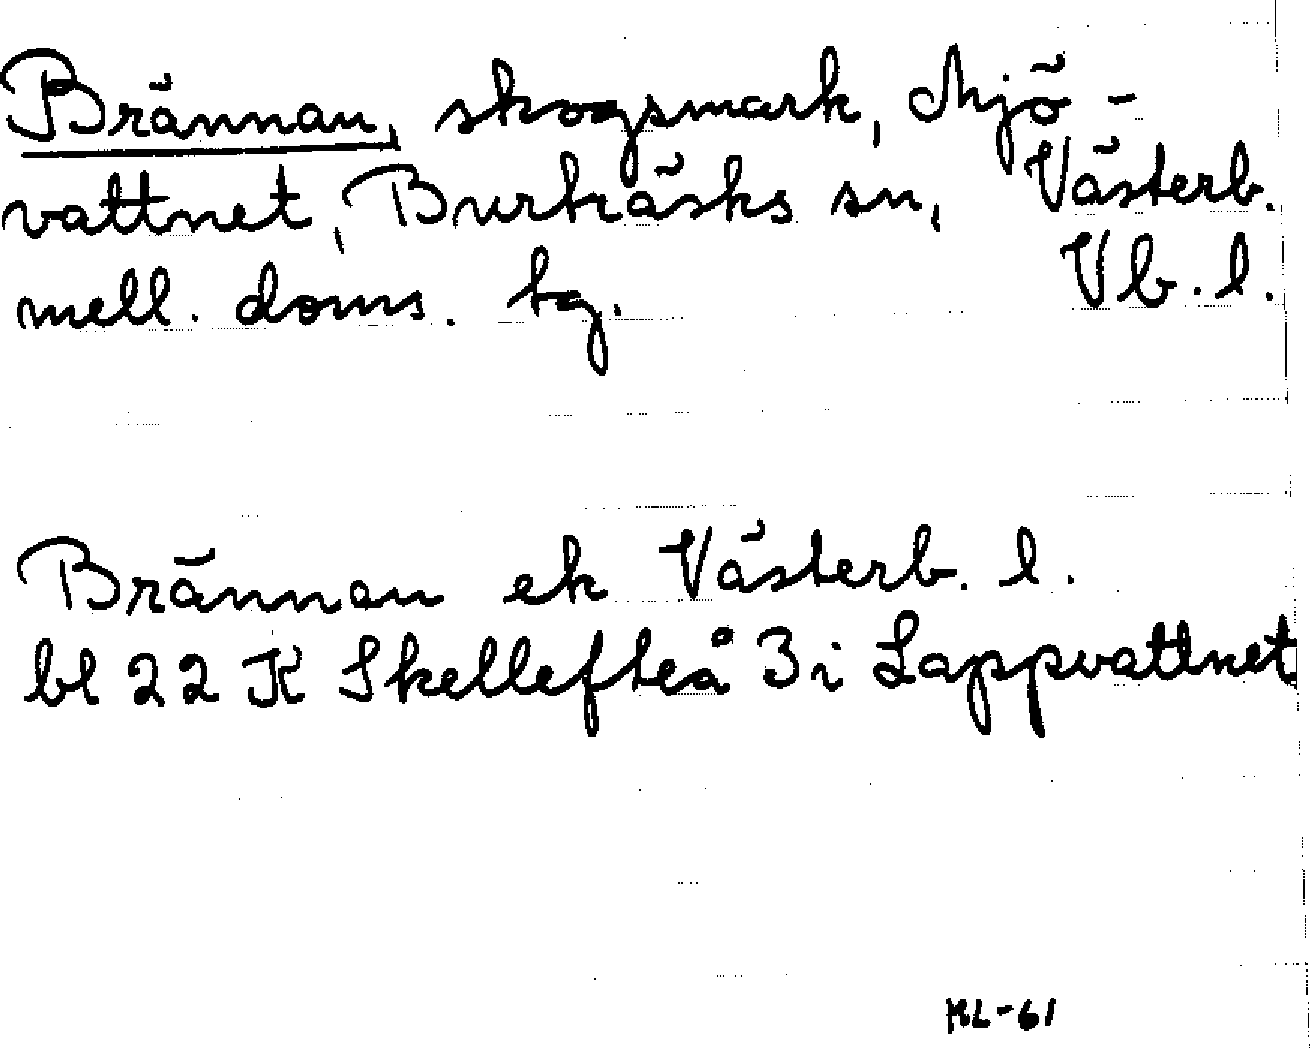 Brännan, skogsmark, Mjö-
vattnet, Burträsks sn, Västerb.
mell. doms. tg. Vb. l.
Brännan ek Västerb. l.
bl 22 K Skellefteå 3 i Lappvattnet
ML-61